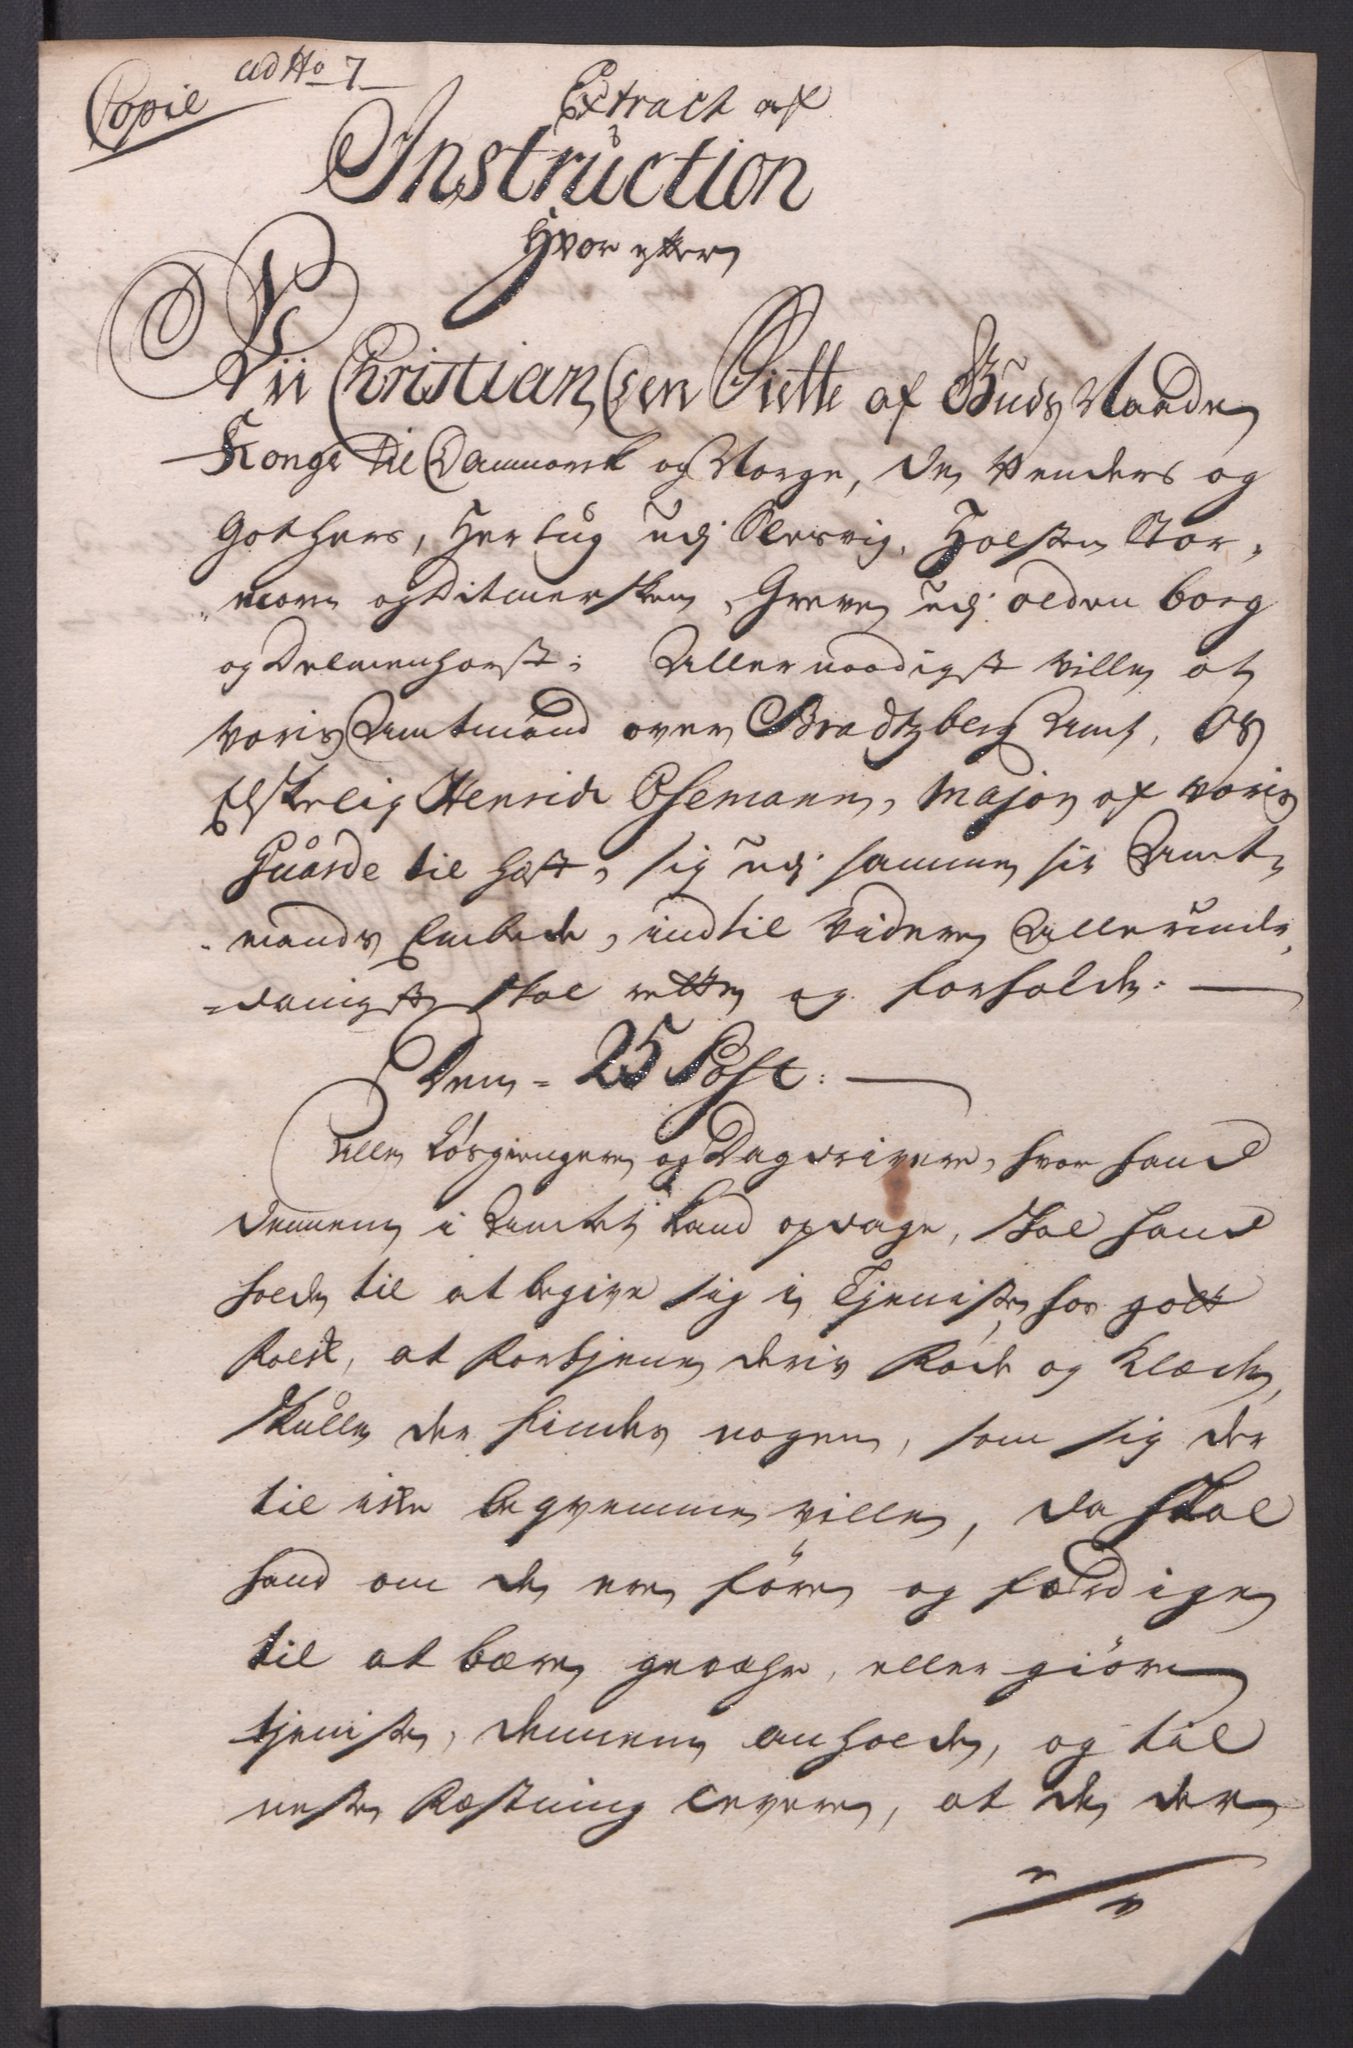 Copie
ad No 7
Extract af
Instruction
Hvor efter
Vii Christian den Siette af Guds Naade
Konge til Danmark og Norge, de Venders og
Gothers, Hertug udj Slesvig, Holsten Stor-
marn og Ditmersken, Greve udj Olden borg
og Delmenhorst; Allernaadigst ville at
voris Amtmand over Bradtzberg Amt, Os
Elskelig Henrich Ochsemann, Major af voris
Guarde til Hest, sig udj samme sit Amt-
mands Embede, indtil Videre Allerunder-
-danigst skal rette og forholde. —
Den - 25 Post: —
Alle Løsgiengere og Dagdrivere, hvor hand
dennem i Amtet kand opdage, skal hand
holde til at begive sig i Tjeniste hos gott
Folck, at fortjene deris Føde og Klæde,
Skulle der findes nogen, som sig der
til icke beqvemme ville, da skal
hand om de ere føre og færdige
til at bære gevæhr, eller giøre
tjeniste, dennem anholde, og til
neste Fæstning levere, at de der